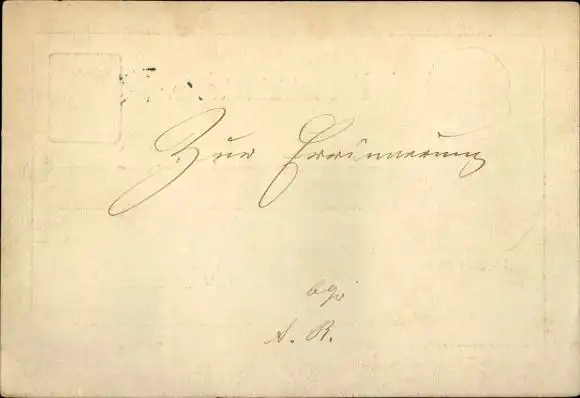 Zur Errinnerung
A. R.